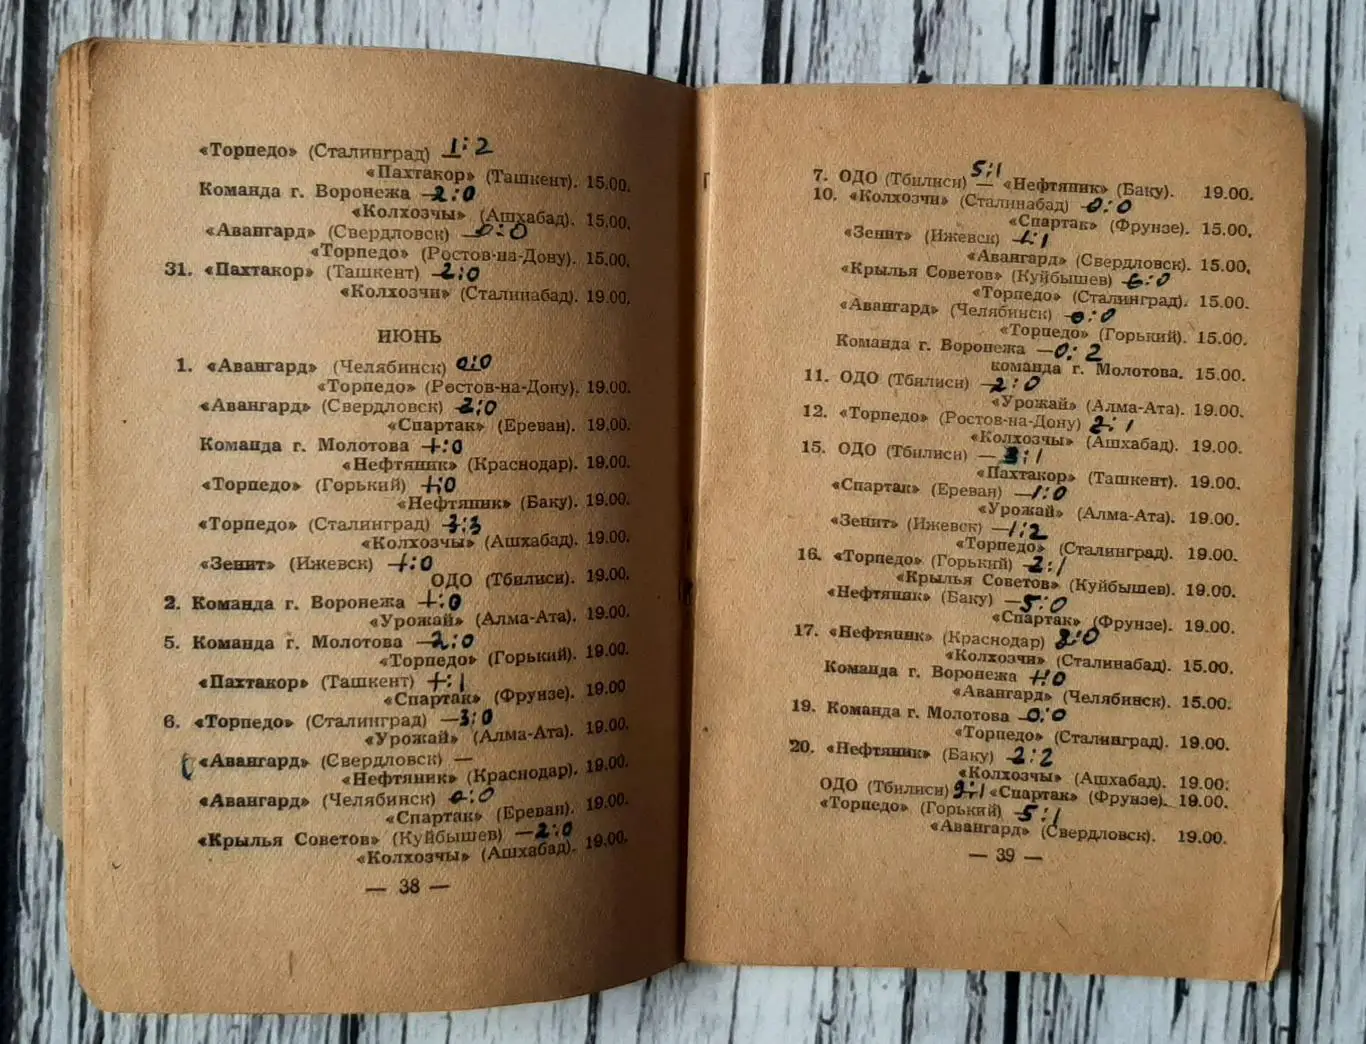 «Торпедо» (Сталинград) — 1:2
«Пахтакор» (Ташкент). 15.00.
Команда г. Воронежа — 2:0
«Колхозчы» (Ашхабад). 15.00.
«Авангард» (Свердловск) — 0:0
«Торпедо» (Ростов-на-Дону). 15.00.
31. «Пахтакор» (Ташкент) — 2:0
«Колхозчи» (Сталинабад). 19.00.
ИЮНЬ
1. «Авангард» (Челябинск) 0:0
«Торпедо» (Ростов-на-Дону). 19.00.
«Авангард» (Свердловск) — 2:0
«Спартак» (Ереван). 19.00.
Команда г. Молотова — 1:0
«Нефтяник» (Краснодар). 19.00.
«Торпедо» (Горький) — 1:0
«Нефтяник» (Баку). 19.00.
«Торпедо» (Сталинград) — 3:3
«Колхозчы» (Ашхабад). 19.00.
«Зенит» (Ижевск) — 1:0
ОДО (Тбилиси). 19.00.
2. Команда г. Воронежа — 1:0
«Урожай» (Алма-Ата). 19.00.
5. Команда г. Молотова — 2:0
«Торпедо» (Горький). 19.00.
«Пахтакор» (Ташкент) — 1:1
«Спартак» (Фрунзе). 19.00
6. «Торпедо» (Сталинград) — 3:0
«Урожай» (Алма-Ата). 19.00.
«Авангард» (Свердловск) —
«Нефтяник» (Краснодар). 19.00.
«Авангард» (Челябинск) 0:0
«Спартак» (Ереван). 19.00.
«Крылья Советов» (Куйбышев) — 2:0
«Колхозчы» (Ашхабад). 19.00.
— 38 —
7. ОДО (Тбилиси) — 5:1 «Нефтяник» (Баку). 19.00.
10. «Колхозчи» (Сталинабад) — 0:0
«Спартак» (Фрунзе). 15.00.
«Зенит» (Ижевск) — 1:1
«Авангард» (Свердловск). 15.00.
«Крылья Советов» (Куйбышев) — 6:0
«Торпедо» (Сталинград). 15.00.
«Авангард» (Челябинск) — 0:0
«Торпедо» (Горький). 15.00.
Команда г. Воронежа — 0:2
команда г. Молотова. 15.00.
11. ОДО (Тбилиси) — 2:0
«Урожай» (Алма-Ата). 19.00.
12. «Торпедо» (Ростов-на-Дону) 2:1
«Колхозчы» (Ашхабад). 19.00.
15. ОДО (Тбилиси) — 3:1
«Пахтакор» (Ташкент). 19.00.
«Спартак» (Ереван) — 1:0
«Урожай» (Алма-Ата). 19.00.
«Зенит» (Ижевск) — 1:2
«Торпедо» (Сталинград). 19.00.
16. «Торпедо» (Горький) — 2:1
«Крылья Советов» (Куйбышев). 19.00.
«Нефтяник» (Баку) — 5:0
«Спартак» (Фрунзе). 19.00.
17. «Нефтяник» (Краснодар) 2:0
«Колхозчи» (Сталинабад). 15.00.
Команда г. Воронежа — 1:0
«Авангард» (Челябинск). 15.00.
19. Команда г. Молотова — 0:0
«Торпедо» (Сталинград). 19.00.
20. «Нефтяник» (Баку) — 2:2
«Колхозчы» (Ашхабад). 19.00.
ОДО (Тбилиси) «Спартак» (Фрунзе). 19.00.
«Торпедо» (Горький) — 5:1
«Авангард» (Свердловск). 19.00.
— 39 —